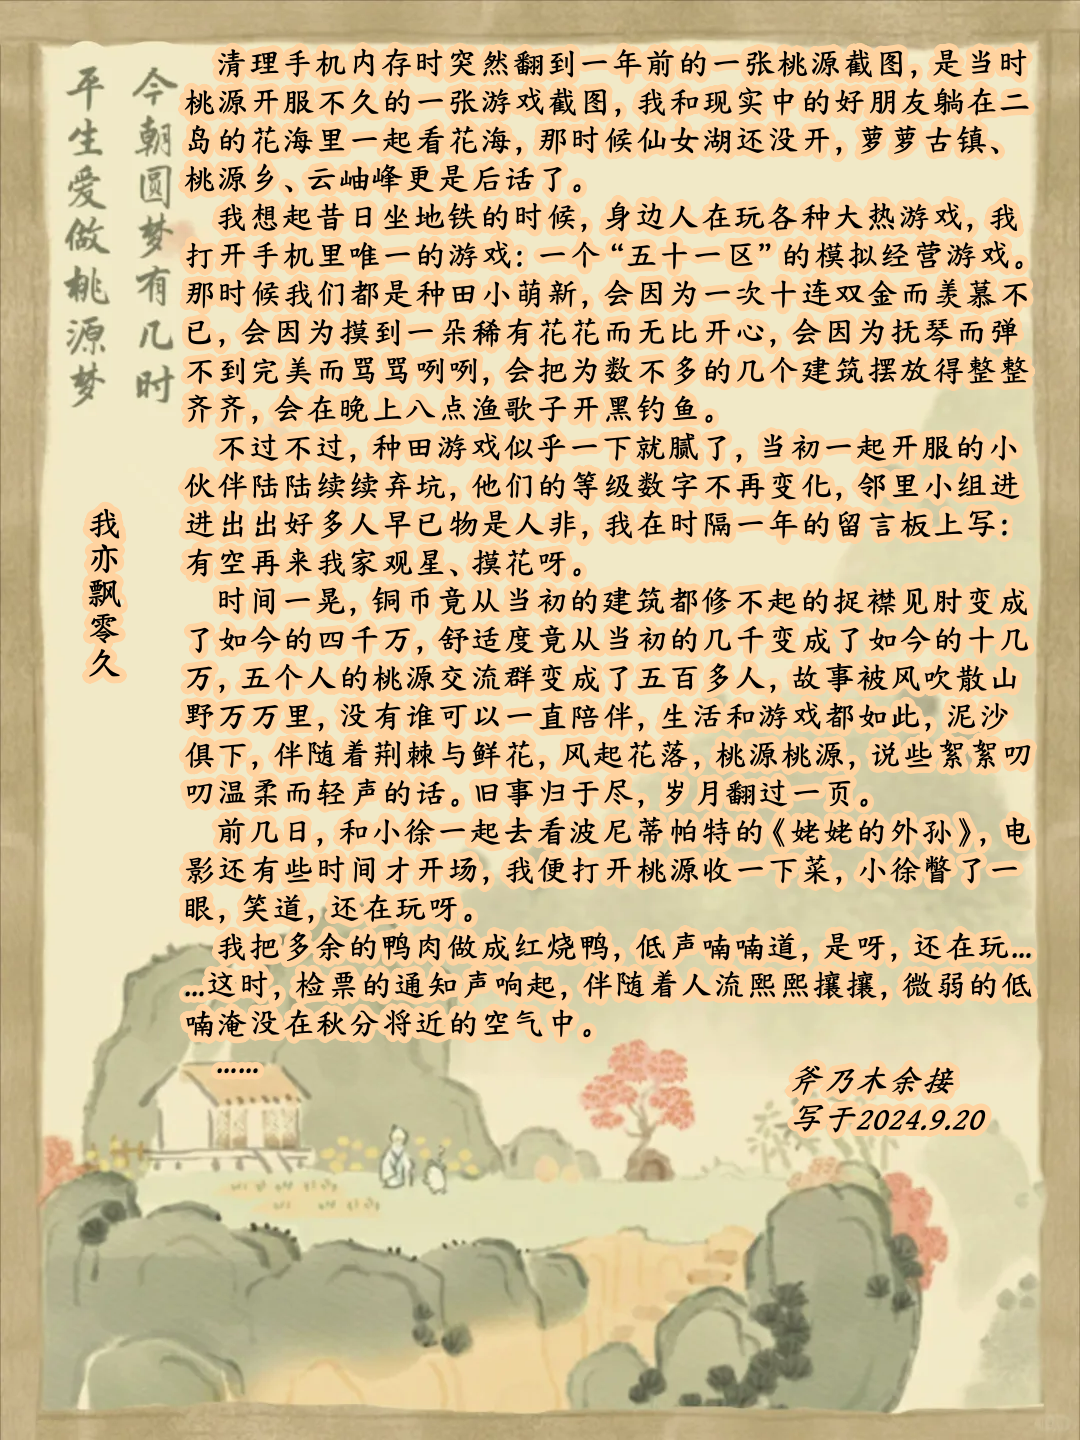 今朝圆梦有几时
平生爱做桃源梦
我亦飘零久
清理手机内存时突然翻到一年前的一张桃源截图，是当时
桃源开服不久的一张游戏截图，我和现实中的好朋友躺在二
岛的花海里一起看花海，那时候仙女湖还没开，萝萝古镇、
桃源乡、云岫峰更是后话了。
我想起昔日坐地铁的时候，身边人在玩各种大热游戏，我
打开手机里唯一的游戏：一个“五十一区”的模拟经营游戏。
那时候我们都是种田小萌新，会因为一次十连双金而羡慕不
已，会因为摸到一朵稀有花花而无比开心，会因为抚琴而弹
不到完美而骂骂咧咧，会把为数不多的几个建筑摆放得整整
齐齐，会在晚上八点渔歌子开黑钓鱼。
不过不过，种田游戏似乎一下就腻了，当初一起开服的小
伙伴陆陆续续弃坑，他们的等级数字不再变化，邻里小组进
进出出好多人早已物是人非，我在时隔一年的留言板上写：
有空再来我家观星、摸花呀。
时间一晃，铜币竟从当初的建筑都修不起的捉襟见肘变成
了如今的四千万，舒适度竟从当初的几千变成了如今的十几
万，五个人的桃源交流群变成了五百多人，故事被风吹散山
野万万里，没有谁可以一直陪伴，生活和游戏都如此，泥沙
俱下，伴随着荆棘与鲜花，风起花落，桃源桃源，说些絮絮叨
叨温柔而轻声的话。旧事归于尽，岁月翻过一页。
前几日，和小徐一起去看波尼蒂帕特的《姥姥的外孙》，电
影还有些时间才开场，我便打开桃源收一下菜，小徐瞥了一
眼，笑道，还在玩呀。
我把多余的鸭肉做成红烧鸭，低声喃喃道，是呀，还在玩…
…这时，检票的通知声响起，伴随着人流熙熙攘攘，微弱的低
喃淹没在秋分将近的空气中。
……
斧乃木余接
写于2024.9.20